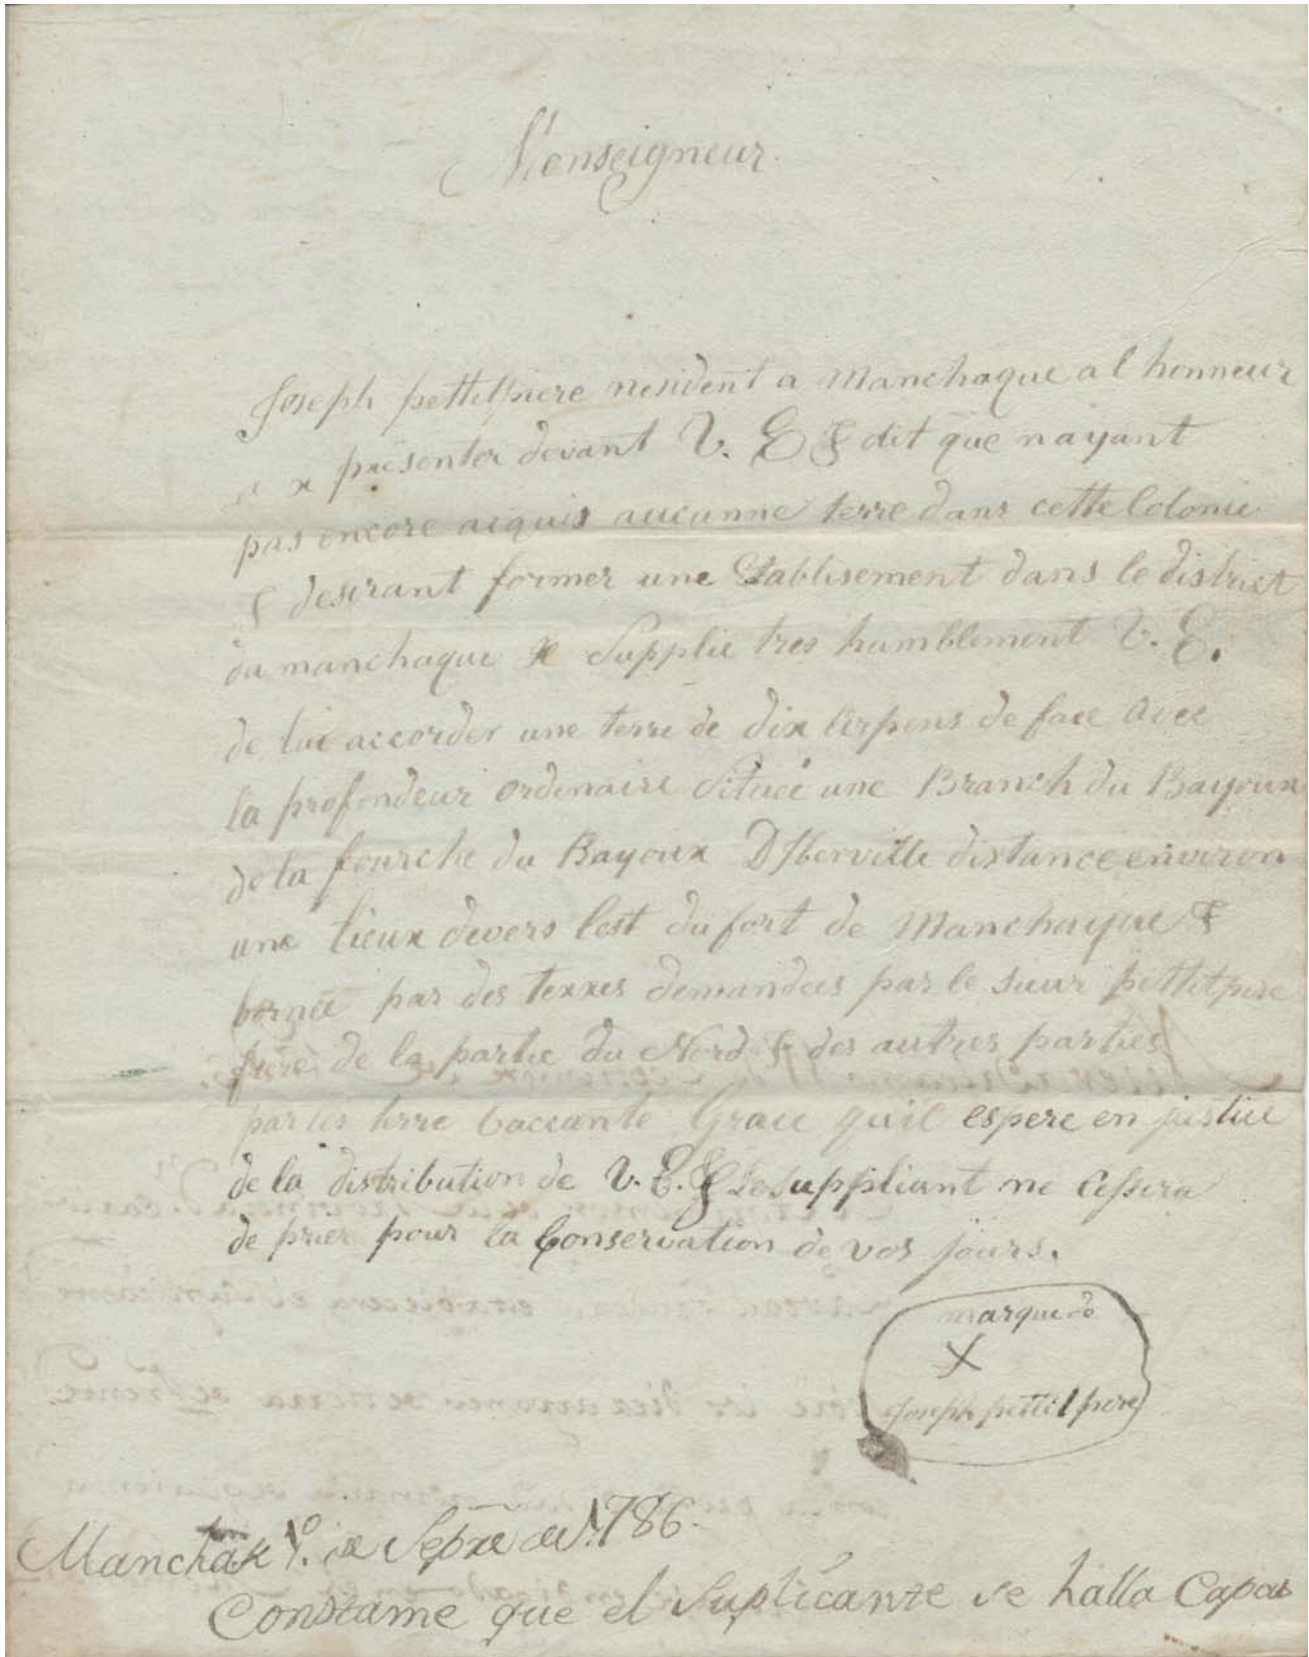 Monseigneur
Joseph pettitpiere resident a Manchaque a l honneur
presenter devant V. E & dit que nayant
pas encore acquis aucunne terre dans cette Colonie
& desirant former une Etablisement dans le district
du manchaque Supplie tres humblement V. E.
de lui accorder une terre de dix arpens de face avec
la profondeur ordinaire Situeé une Branch du Bayoux
de la fourche du Bayoux D'Iberville distance environ
une lieux devers lest du fort de Manchaque &
borneé par des terres demandees par le sieur pettitpere
frere de la partie du Nord & des autres parties
par les terre baccante Grace quil espere en justice
de la distribution de V. E. & Le suppliant ne Cessera
de prier pour la Conservation de vos jours.
marque de
X
Joseph pettitpere
Manchak 1º. de Sepre de 1786.
Constame que el Suplicante se halla Capas